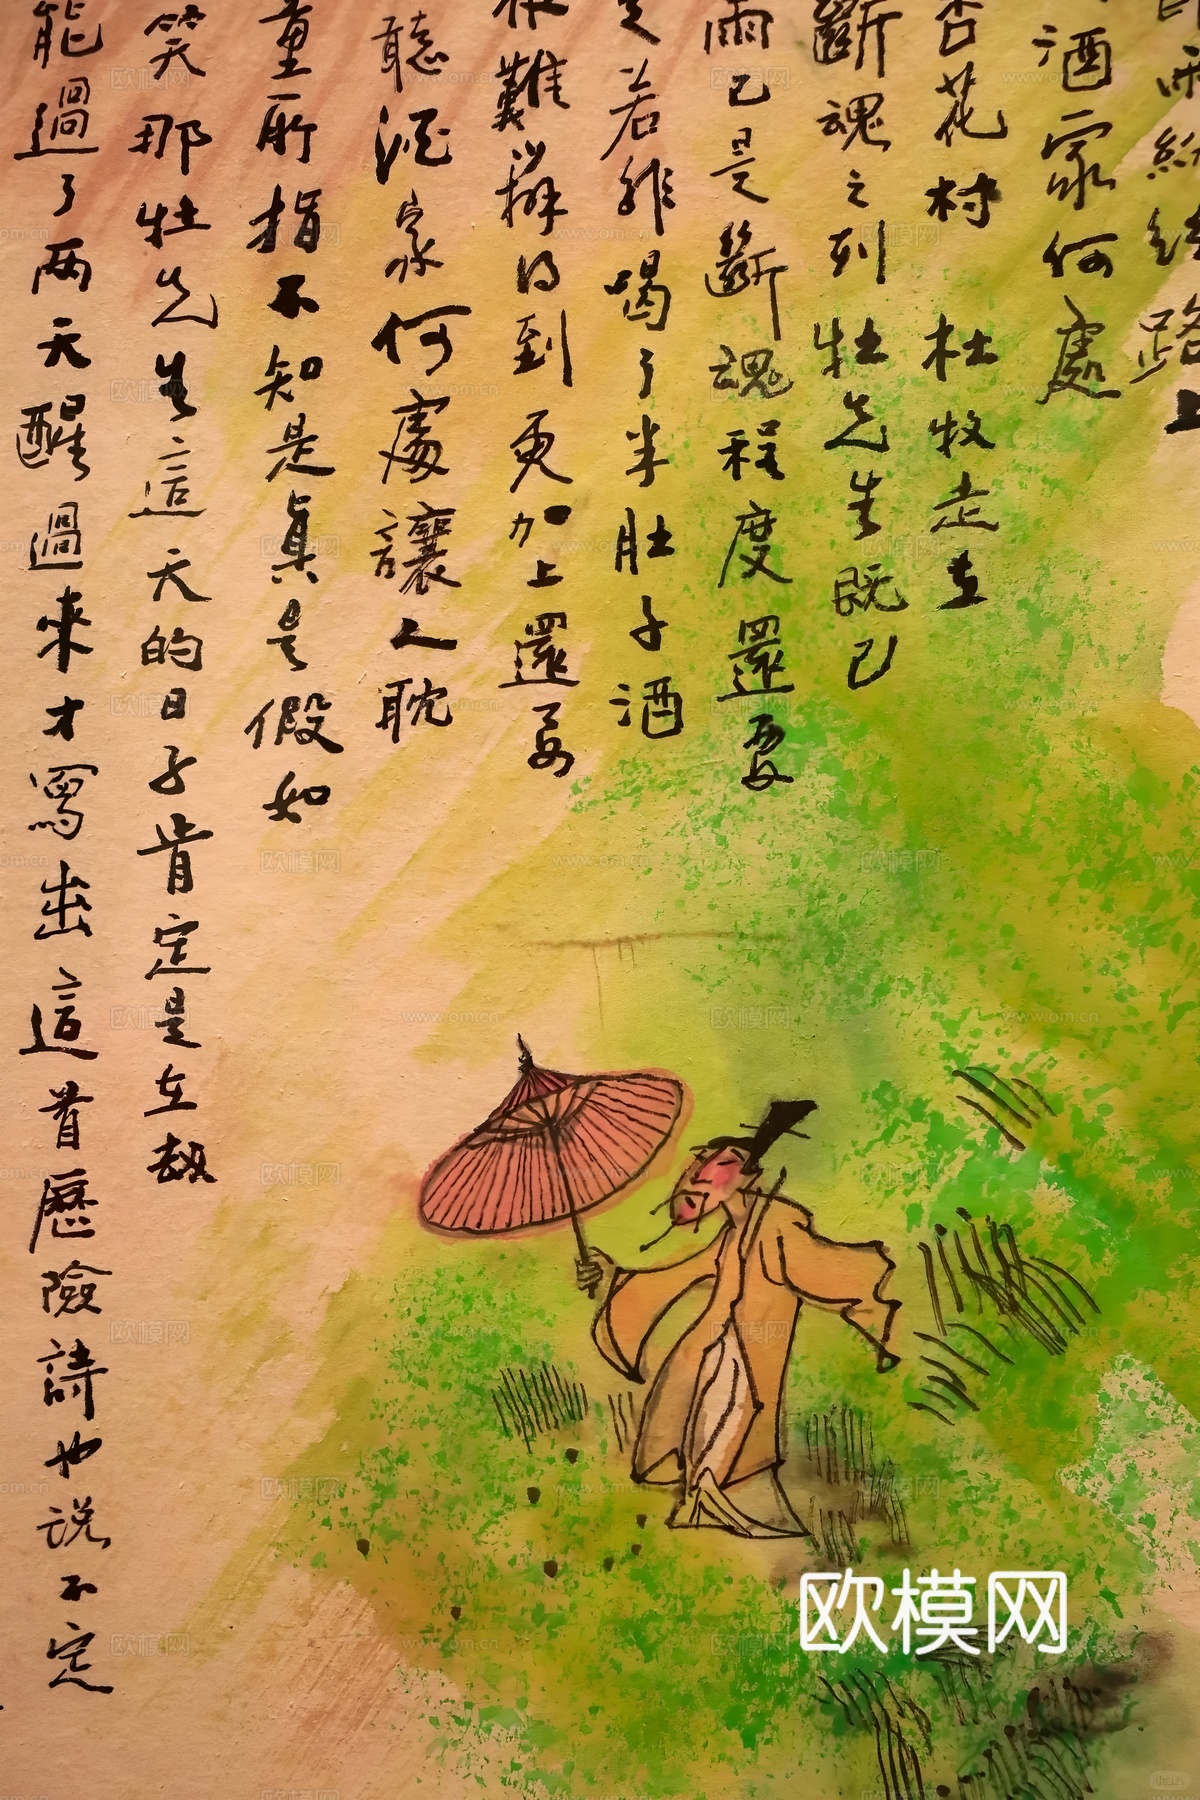 雨紛紛路上
酒家何處
杏花村杜牧走在
斷魂之列牡先生既已
雨已是斷魂程度還要
若非喝了半肚子酒
難辨得到更加上還要
聽酒家何處讓人耽
童所指不知是真是假如
笑那牡先生這天的日子肯定是在
能過了两天醒過來才寫出這首歷險詩也说不定
欧模网